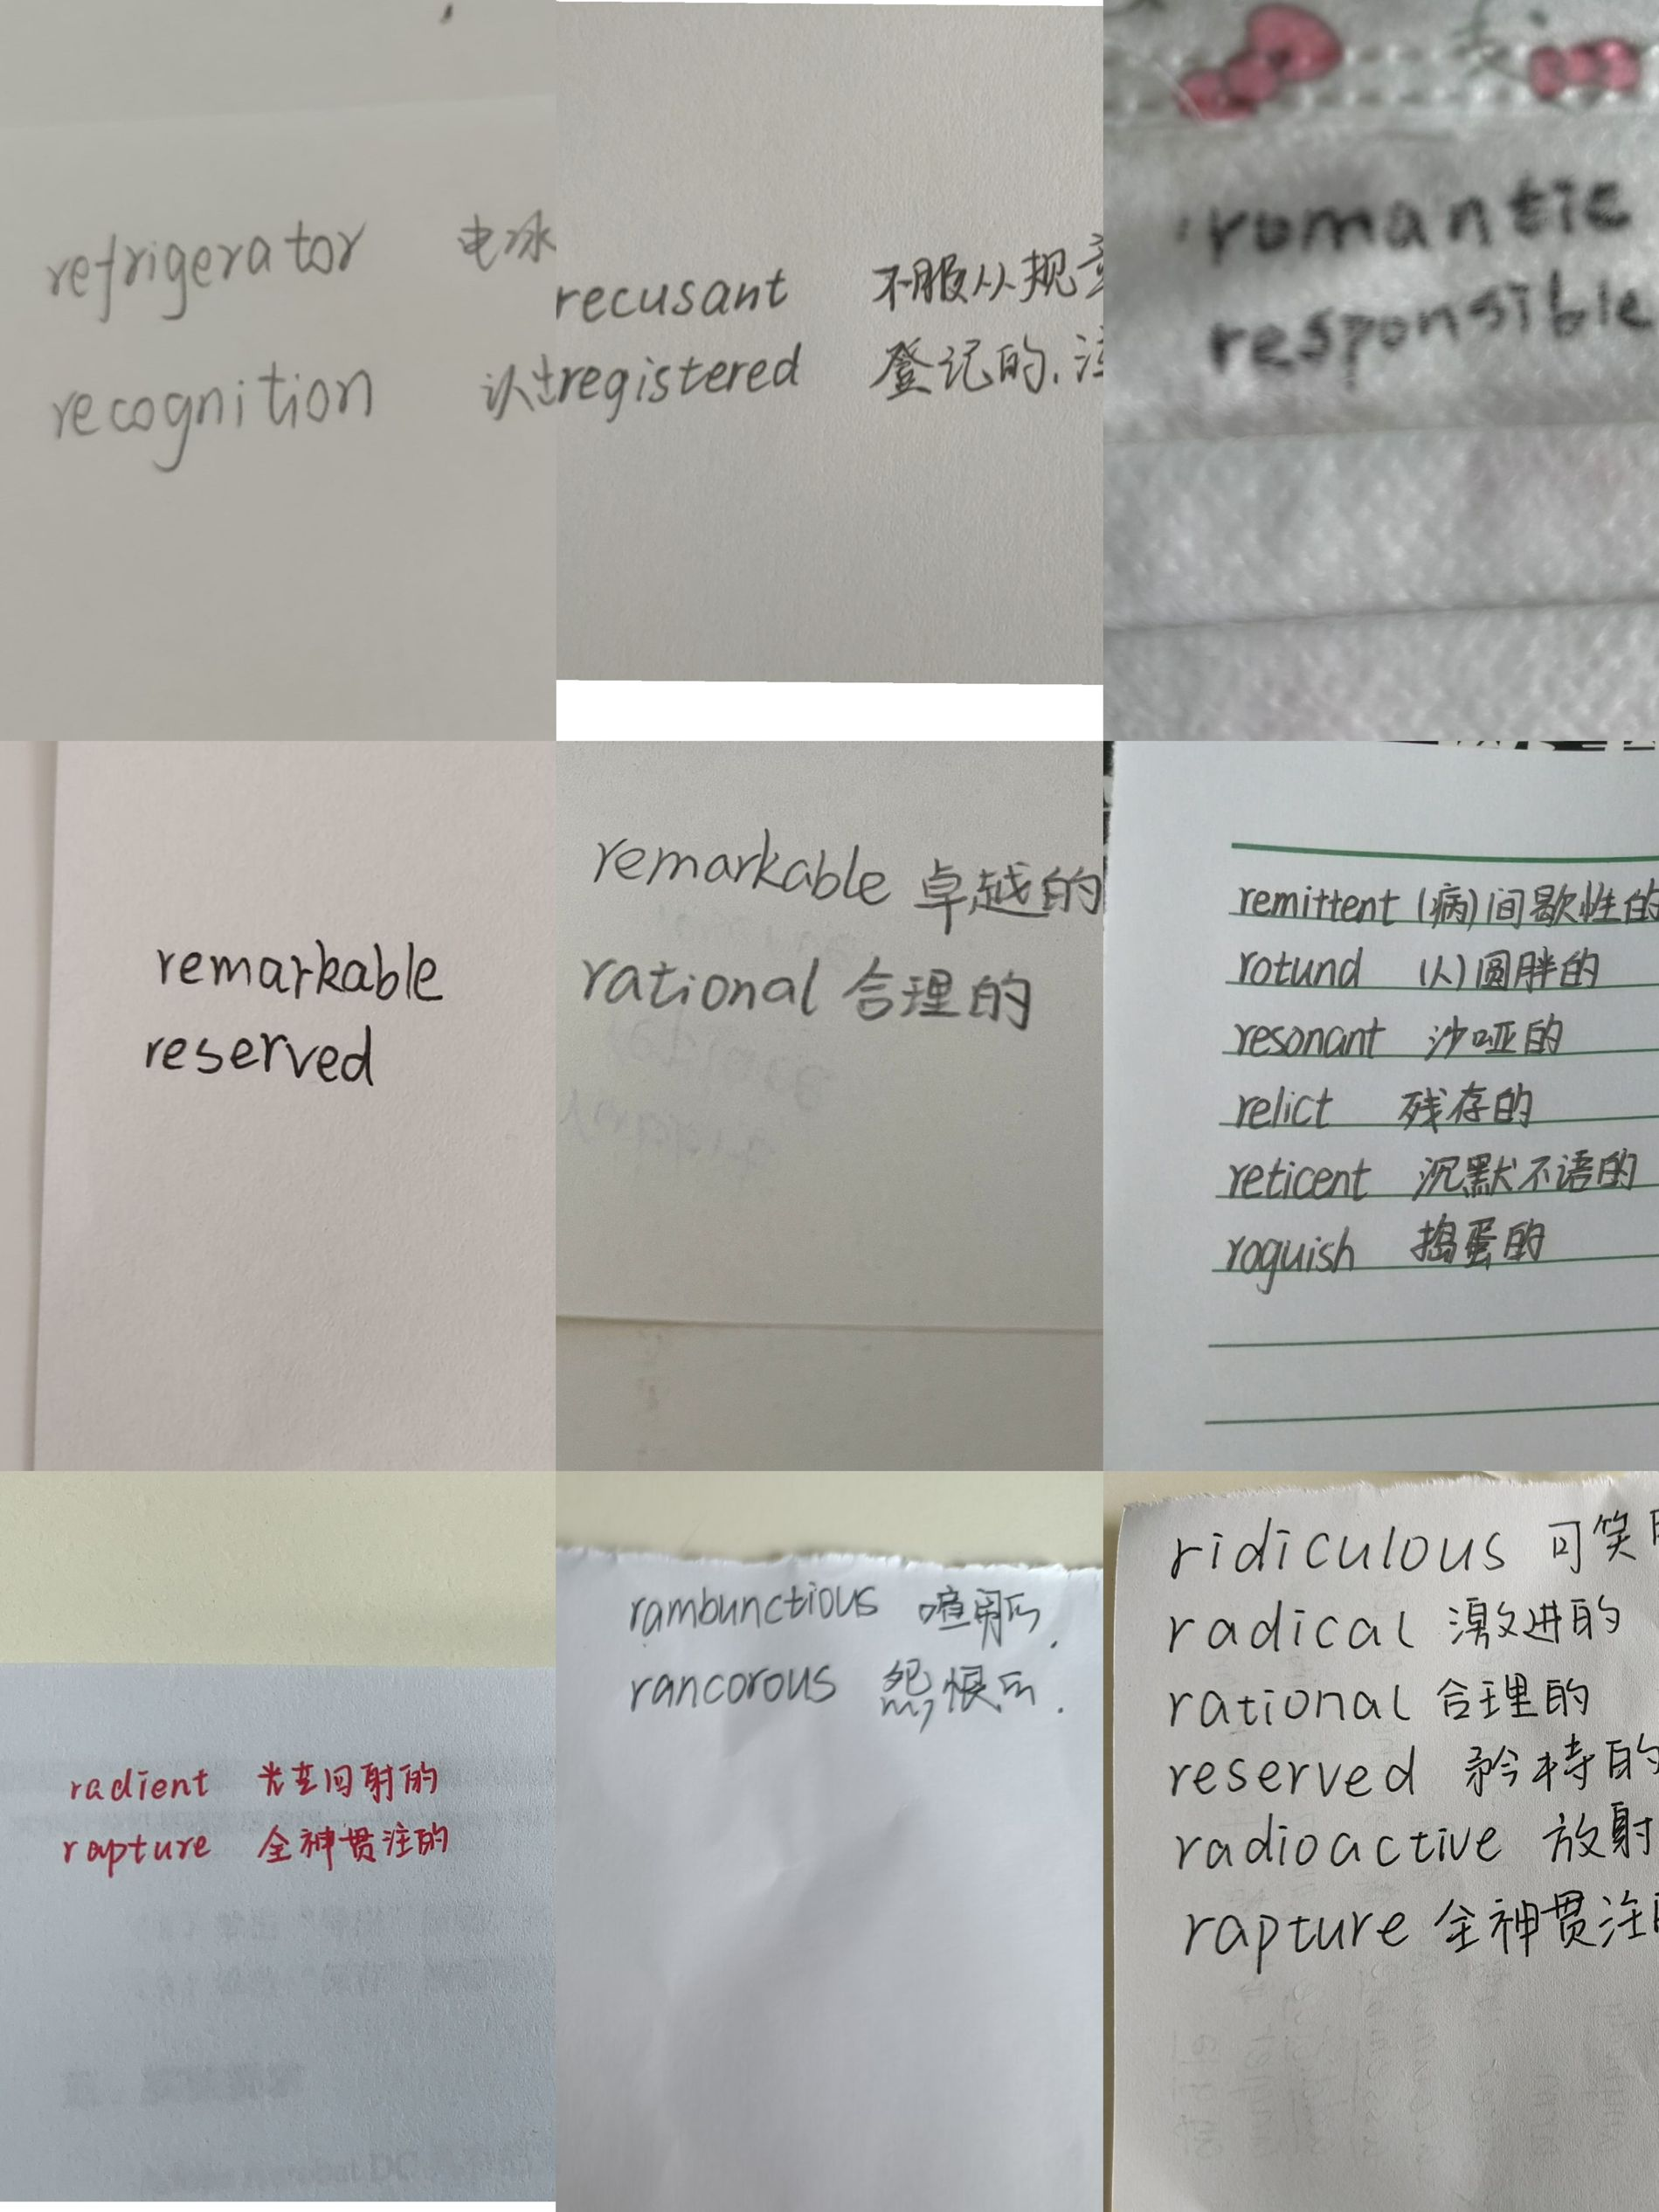 refrigerator 电冰
recognition 认
recusant 不服从规
registered 登记的,注
romantic
responsible
remarkable
reserved
remarkable 卓越的
rational 合理的
remittent (病)间歇性的
rotund (人)圆胖的
resonant 沙哑的
relict 残存的
reticent 沉默不语的
roguish 捣蛋的
radient 光芒四射的
rapture 全神贯注的
rambunctious 喧闹的.
rancorous 怨恨的.
ridiculous 可笑
radical 激进的
rational 合理的
reserved 矜持的
radioactive 放射
rapture 全神贯注